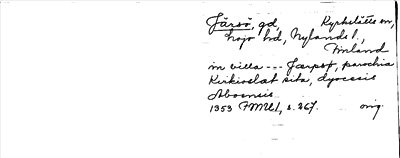 Järsö, gd, Kyrkslätts sn,
Lojo hd, Nylands l.,
Finland
in villa --- Jærpsø, parochia
Kirkioslæt sita, dyocesis
Aboensis
1353 FMU I, s. 267. orig.